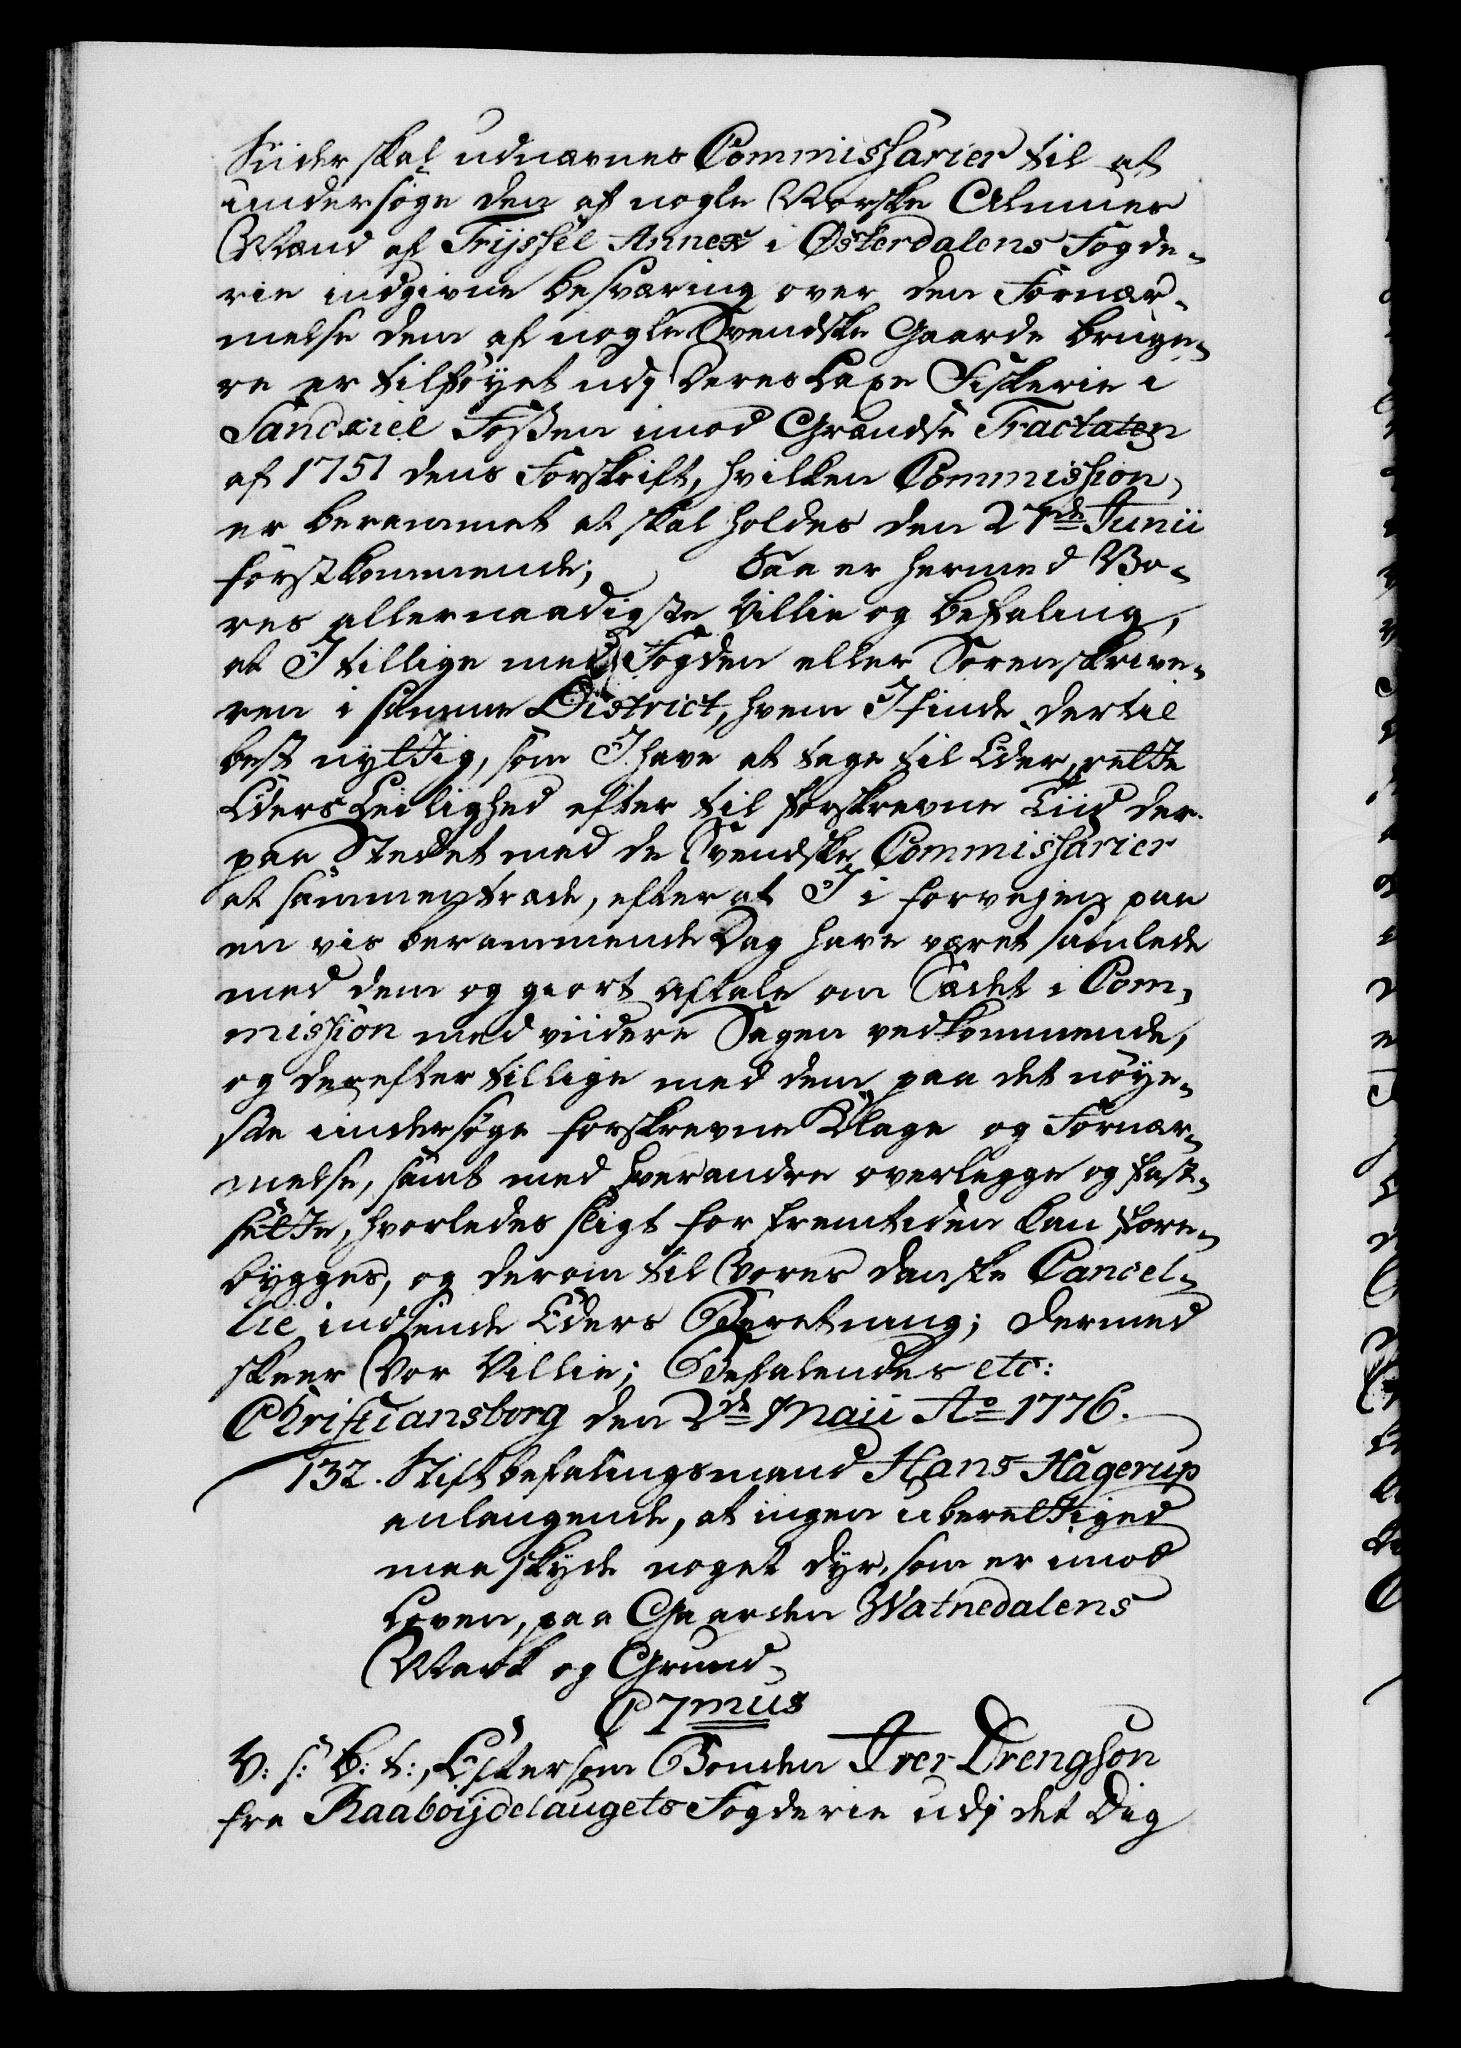 Siider skal udnævnes Commissarier til at
undersøge den af nogle Norske Almues
Mænd af Trijssel Annex i Østerdalens Fogde-
rie indgivne besværing over den Fornær-
melse dem af nogle Svendske Gaarde bruge-
re er tilføyet udj deres Laxe Fiskerie i
Sandxiel Fossen imod Grændse Tractaten
af 1751 dens Forskrift, hvilken Commission
er berammet at skal holdes den 27de Junii
førstkommende; Saa er hermed Vo-
res allernaadigste Villie og befaling,
at I tillige med Fogden eller Sorenskrive-
ren i samme District, hvem I finde dertil
best nyttig, som I have at tage til Eder, rette
Eders Leilighed efter til forskrevne Tiid der
paa Stedet med de Svendske Commissarier
at sammentræde, efter at I i forvejen paa
en vis berammende Dag have været samlede
med dem og giort aftale om Sædet i Com-
mission med viidere Sagen vedkommende,
og derefter tillige med dem paa det nøye-
ste undersøge forskrevne Klage og Fornær-
melse, samt med hverandre overlegge og fast-
sætte, hvorledes sligt for fremtiden kan fore-
bygges, og derom til Vores danske Cancel-
lie indsende Eders Beretning; dermed
skeer Vor Villie; Befalendes etc:
Christiansborg den 2de Maii Ao 1776.
132. Stiftbefalingsmand Hans Hagerup
anlangende, at ingen uberettiged
maa skyde noget dyr, som er imod
Loven, paa Gaarden Watnedalens
Mark og Grund.
C 7mus
V: s: B: t:, Eftersom Bonden Iver Drengson
fra Raaboijdelaugets Fogderie udj det Dig